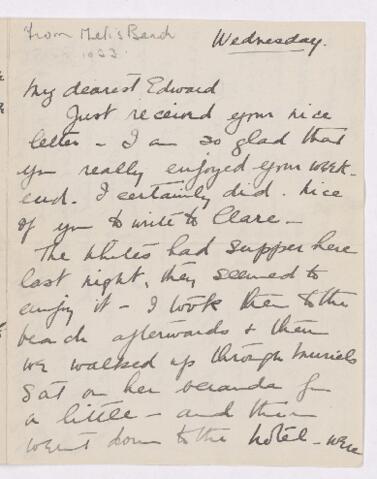 From Metis Beach
1933
Wednesday.
My dearest Edward
Just received your nice
letter - I am so glad that
you really enjoyed your week-
end. I certainly did. Nice
of you to write to Clare -
The Whites had supper here
last night, they seemed to
enjoy it - I took them to the
beach afterwards & then
we walked up through Muriels
Sat on her veranda for
a little - and then
went down to the hotel - were